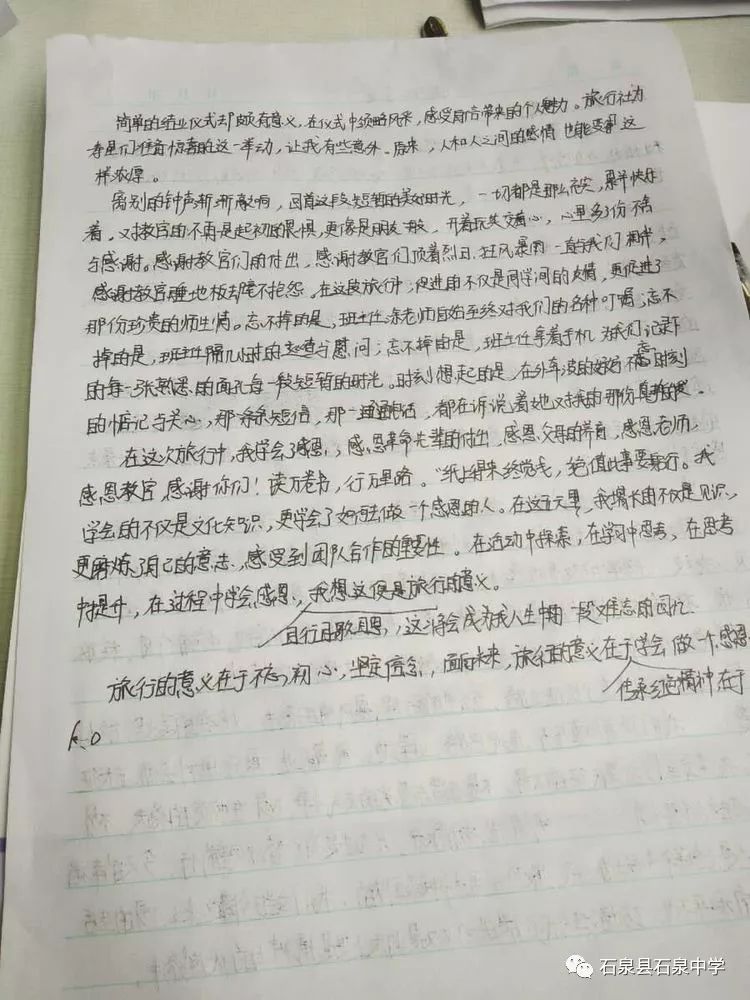 简单的结业仪式却颇有意义，在仪式中领略风采，感受自信带来的个人魅力。旅行社为
寿星们准备惊喜的这一举动，让我有些意外。原来，人和人之间的感情也能变那这
样浓厚。
离别的钟声渐渐敲响，回首这段短暂的美好时光，一切都是那么充实，累并快乐
着。对教官的不再是起初的畏惧，更像是朋友一般，开着玩笑交着心，心里多了份不舍
与感谢。感谢教官们的付出，感谢教官们顶着烈日、狂风暴雨一直与我们相伴，
感谢教官睡地板却毫不抱怨。在这段旅行中，促进的不仅是同学间的友情，更促进了
那份珍贵的师生情。忘不掉的是，班主任涂老师自始至终对我们的各种叮嘱；忘不
掉的是，班主任隔几小时的查与慰问；忘不掉的是，班主任拿着手机为我们记录下
的每一张熟悉的面孔每一段短暂的时光。时刻想起的是，在外奔波的妈妈不时刻
的惦记与关心，那一条条短信，那一通通电话，都在诉说着她对我的那份
在这次旅行中，我学会了感恩，感恩革命先辈的付出，感恩父母的养育，感恩老师，
感恩教官，感谢你们！读万卷书，行万里路。“纸上得来终觉浅，绝值此事要躬行。我
学会的不仅是文化知识，更学会了如何去做一个感恩的人。在这五天里，我增长的不仅是见识，
更磨炼了自己的意志，感受到团队合作的重要性。在活动中探索，在学习中思考，在思考
中提升，在过程中学会感恩，我想这便是旅行的意义。
且行且歌且思，这将会成为我人生中的一段难忘的回忆
旅行的意义在于不忘初心，坚定信念，面向未来，旅行的意义在于学会做一个感恩
传承红色精神在于
的人。
石泉县石泉中学